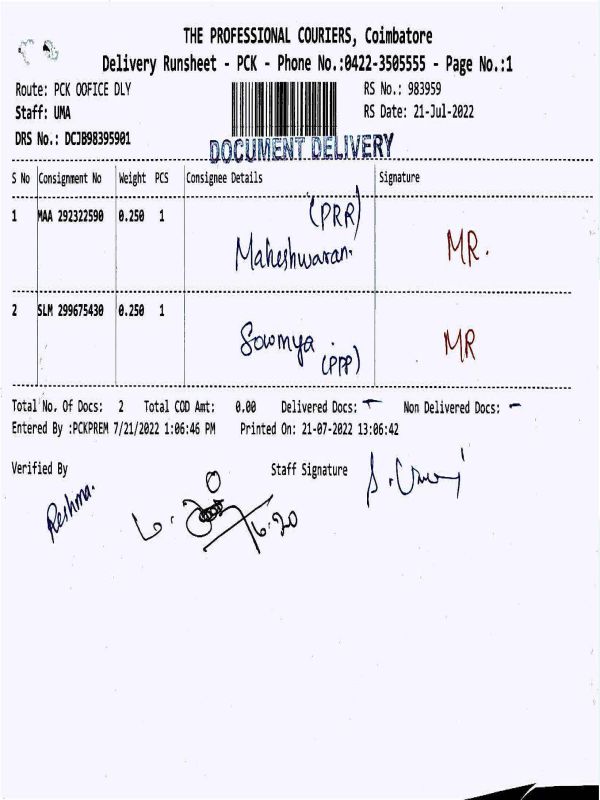 THE PROFESSIONAL COURIERS, Coimbatore
Delivery Runsheet - PCK - Phone No.:0422-3505555 - Page No.:1
Route: PCK OOFICE DLY RS No.: 983959
Staff: UMA RS Date: 21-Jul-2022
DRS No.: DCJB98395901
DOCUMENT DELIVERY
S No Consignment No Weight PCS Consignee Details Signature
1 MAA 292322590 0.250 1 (PRR) Maheshwaran. MR.
2 SLM 299675430 0.250 1 Sowmya (PPP) MR
Total No. Of Docs: 2 Total COD Amt: 0.00 Delivered Docs: - Non Delivered Docs: -
Entered By :PCKPREM 7/21/2022 1:06:46 PM Printed On: 21-07-2022 13:06:42
Verified By Staff Signature
Reshma.
6.20